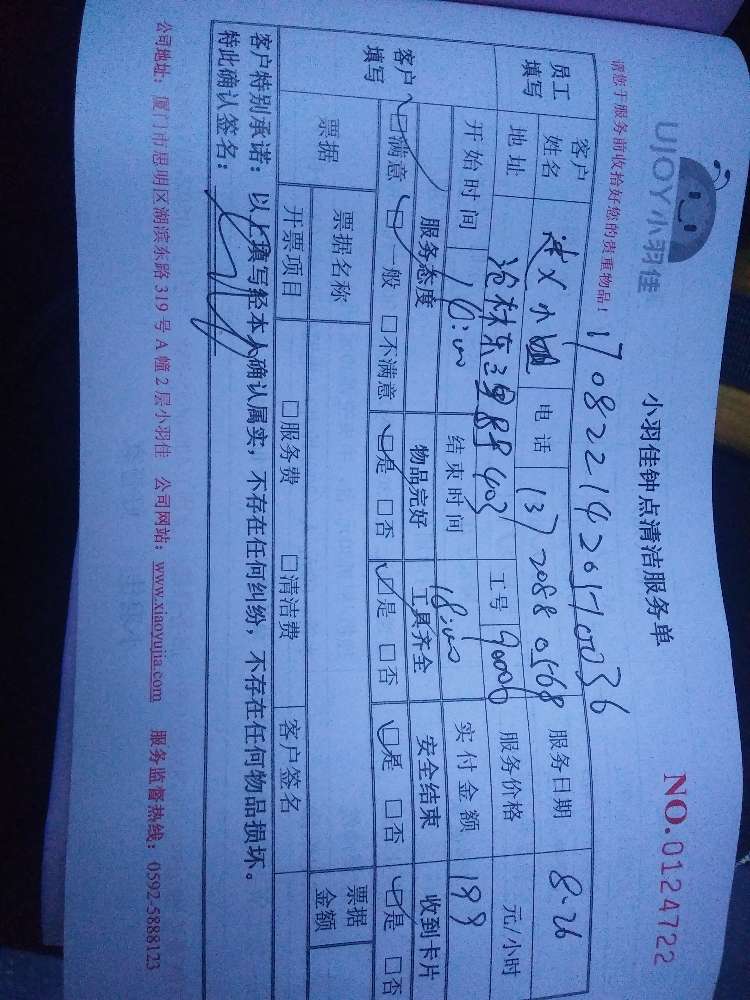 UJOY小羽佳
小羽佳钟点清洁服务单
NO.0124722
请您于服务前收拾好您的贵重物品！
1708221420170036
员工填写
客户姓名 小姐 电话 137 2088 0568 服务日期 8.26
地址 东里 403 工号 90006 服务价格 元/小时
客户填写
开始时间 16:00 结束时间 18:00 实付金额 199
服务态度 物品完好 工具齐全 安全结束 收到卡片
☑满意 ☑一般 □不满意 ☑是 □否 ☑是 □否 ☑是 □否 ☑是 □否
票据 票据名称 票据金额
开票项目 □服务费 □清洁费 客户签名
客户特别承诺：以上填写经本人确认属实，不存在任何纠纷，不存在任何物品损坏。
特此确认签名：
公司地址：厦门市思明区湖滨东路319号A幢2层小羽佳 公司网站：www.xiaoyujia.com 服务监督热线：0592-5888123